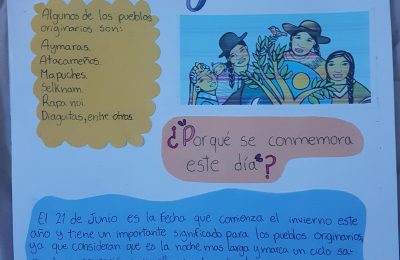 Algunos de los pueblos
originarios son:
Aymaras.
Atacameños.
Mapuches.
Selknam.
Rapa nui.
Diaguitas, entre otros.
¿Porqué se conmemora
este día?
El 21 de Junio es la fecha que comienza el invierno este
año y tiene un importante significado para los pueblos originarios,
ya que consideran que es la noche mas larga y marca un ciclo sa-